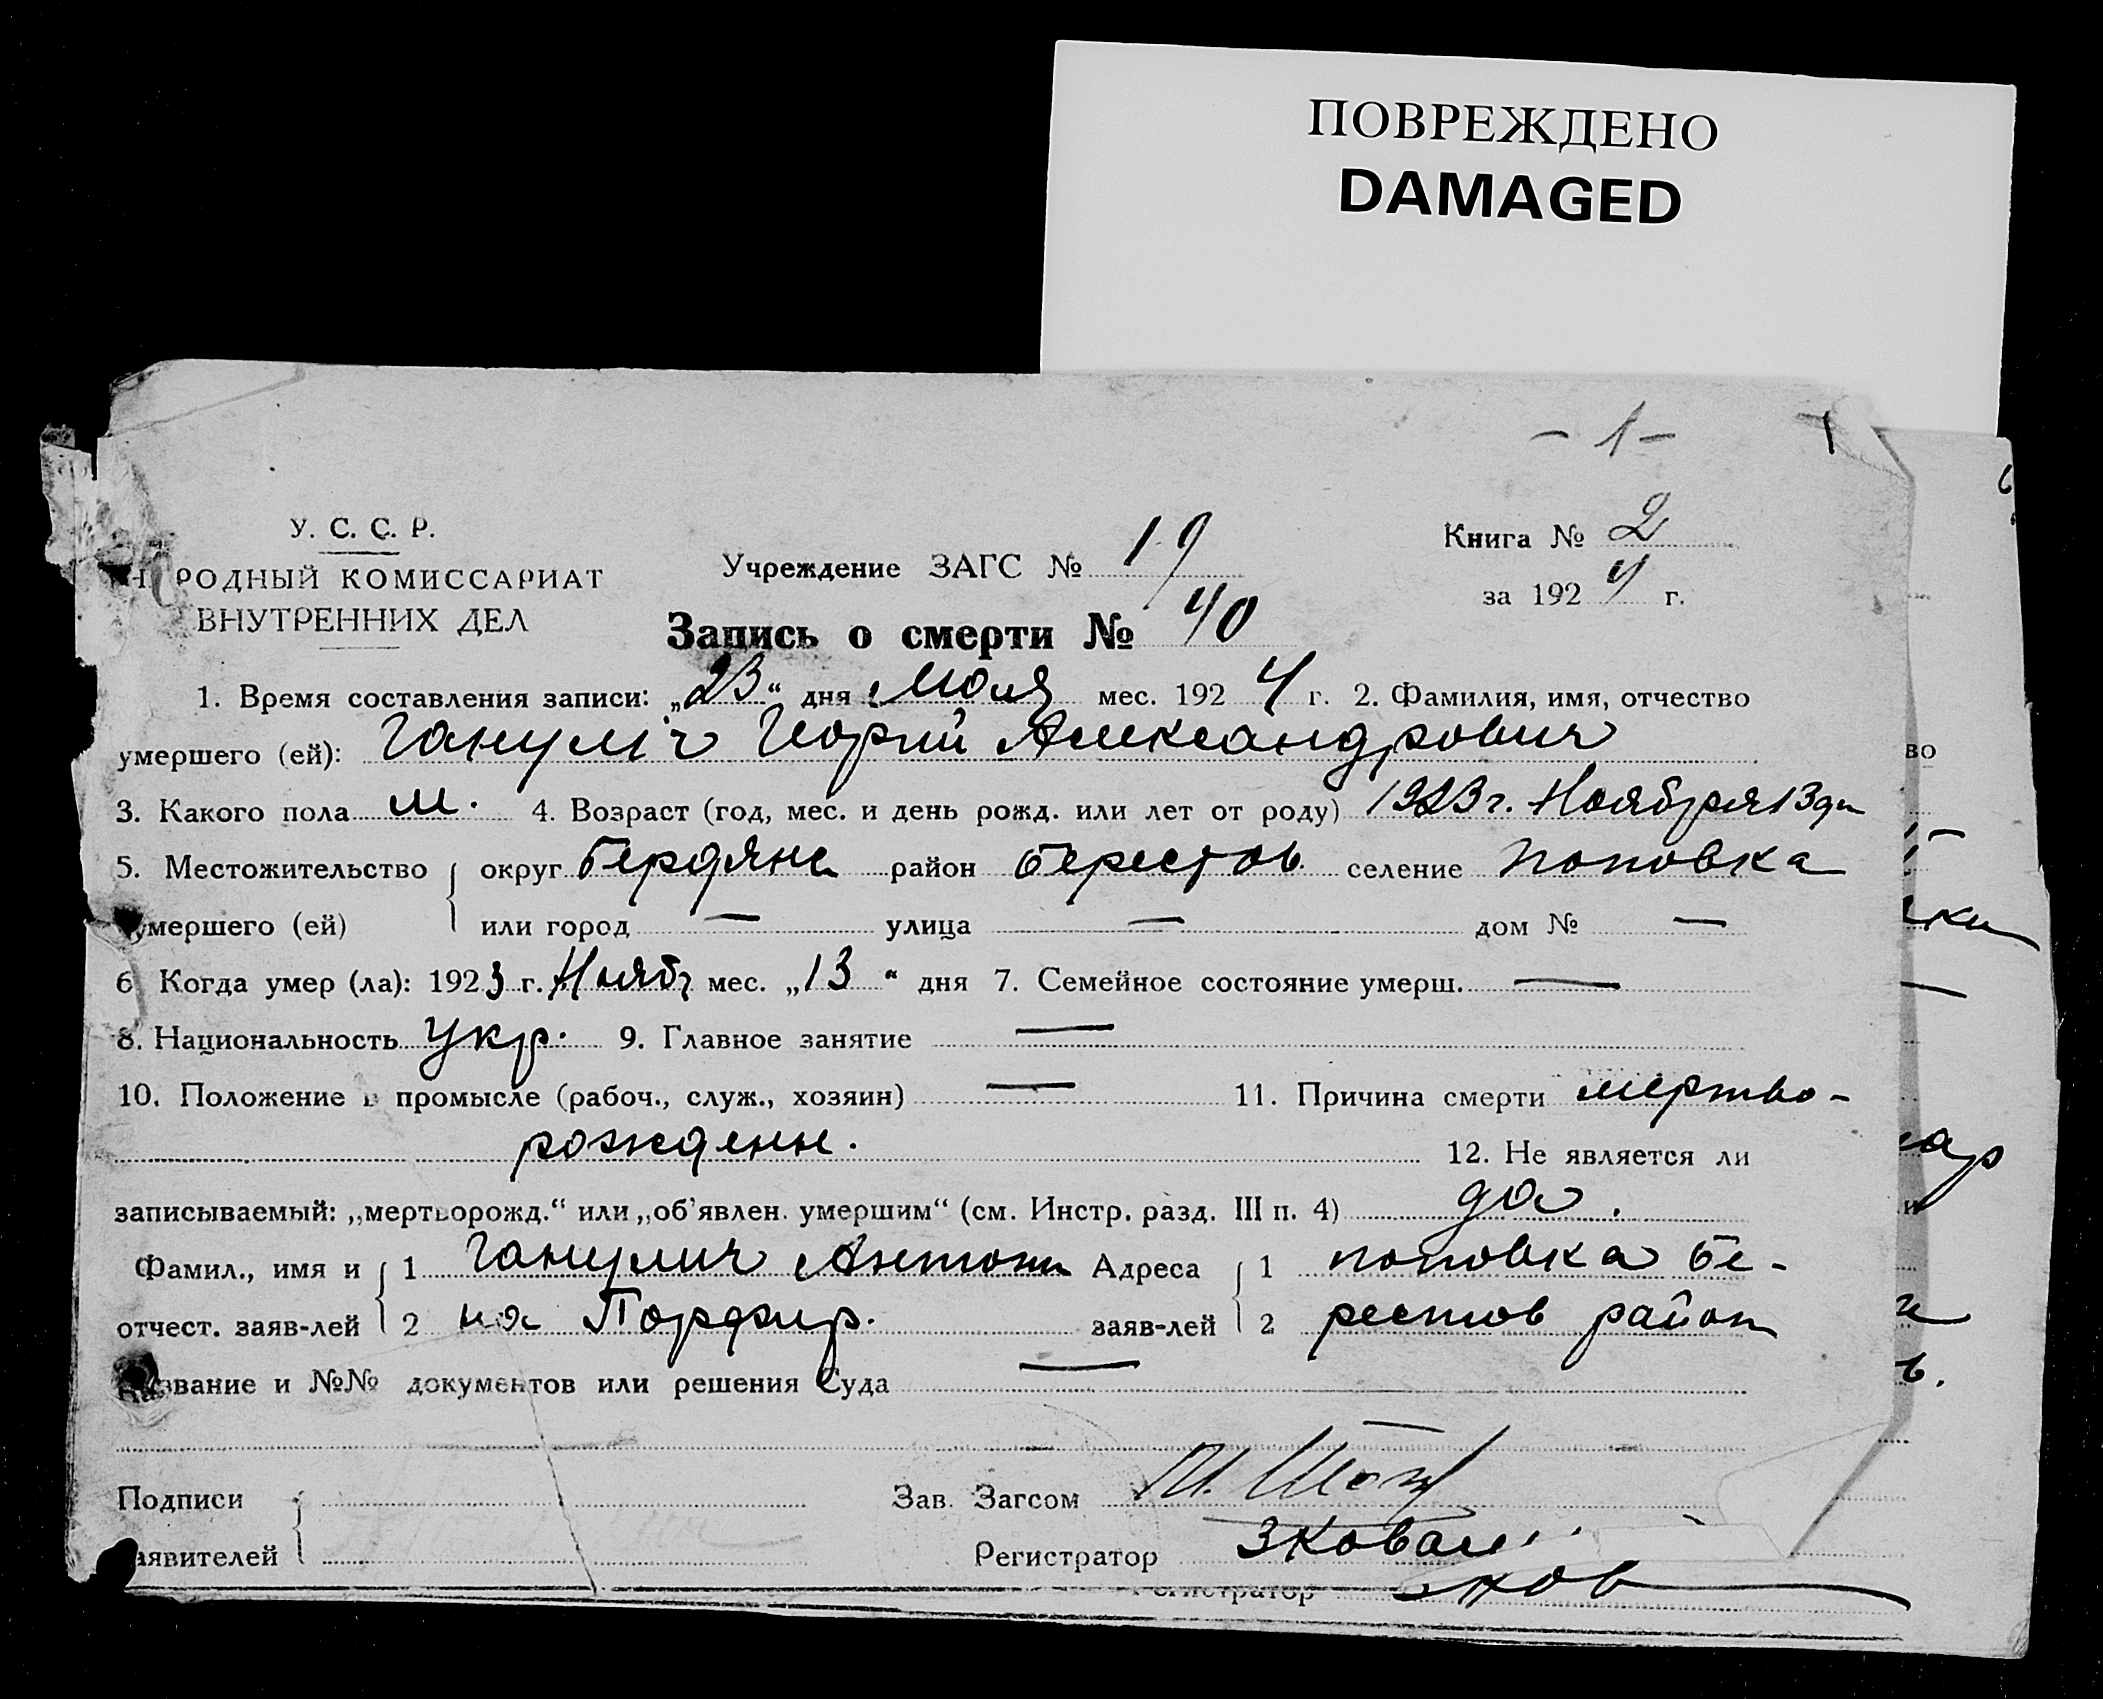 ПОВРЕЖДЕНО
DAMAGED
- 1 -
У. С. С. Р.
РОДНЫЙ КОМИССАРИАТ
ВНУТРЕННИХ ДЕЛ
Учреждение ЗАГС № 19
Книга № 2
за 1924 г.
Запись о смерти № 40
1. Время составления записи: „23“ дня Июля мес. 1924 г. 2. Фамилия, имя, отчество
умершего (ей): Ганулiч Георгий Александрович
3. Какого пола м. 4. Возраст (год, мес. и день рожд. или лет от роду) 1923 г. Ноября 13 дн
5. Местожительство округ Бердянс район Берестов. селение Поповка
умершего (ей) или город — улица — дом № —
6 Когда умер (ла): 1923 г. Ноябр мес. „13“ дня 7. Семейное состояние умерш. —
8. Национальность укр. 9. Главное занятие —
10. Положение в промысле (рабоч., служ., хозяин) — 11. Причина смерти мертво-
рожденн. 12. Не является ли
записываемый: „мертворожд.“ или „об'явлен. умершим“ (см. Инстр. разд. III п. 4) да.
Фамил., имя и 1 Ганулич Антони Адреса 1 Поповка Бе-
отчест. заяв-лей 2 на Порфир. заяв-лей 2 рестов район
звание и №№ документов или решения Суда —
Подписи Зав. Загсом
аявителей Регистратор
Регистратор